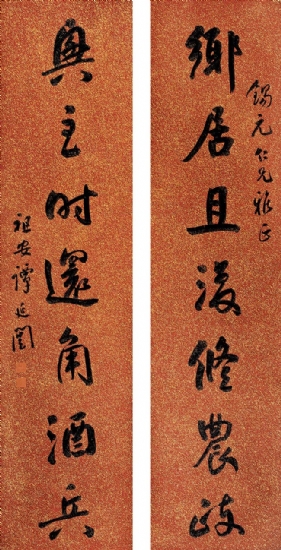 錫元仁兄雅正
鄉居且復脩農政
興至時還角酒兵
祖安譚延闓